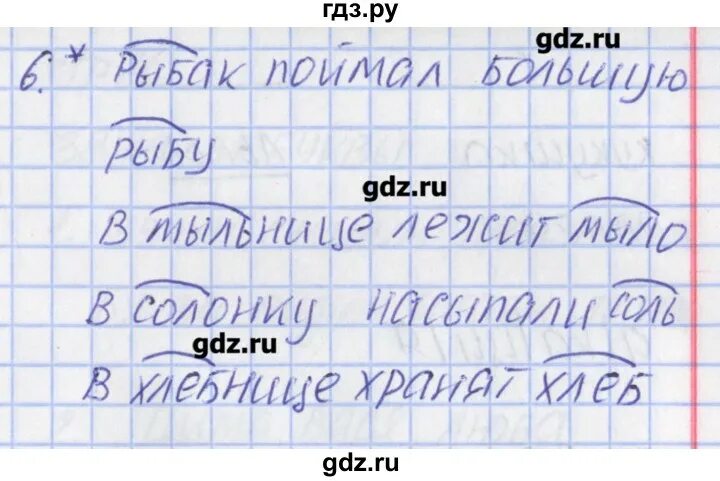 гдз.ру
gdz.ru
6.* Рыбак поймал большую
рыбу
gdz.ru
В мыльнице лежит мыло
В солонку насыпали соль
gdz.ru
В хлебнице хранят хлеб
gdz.ru